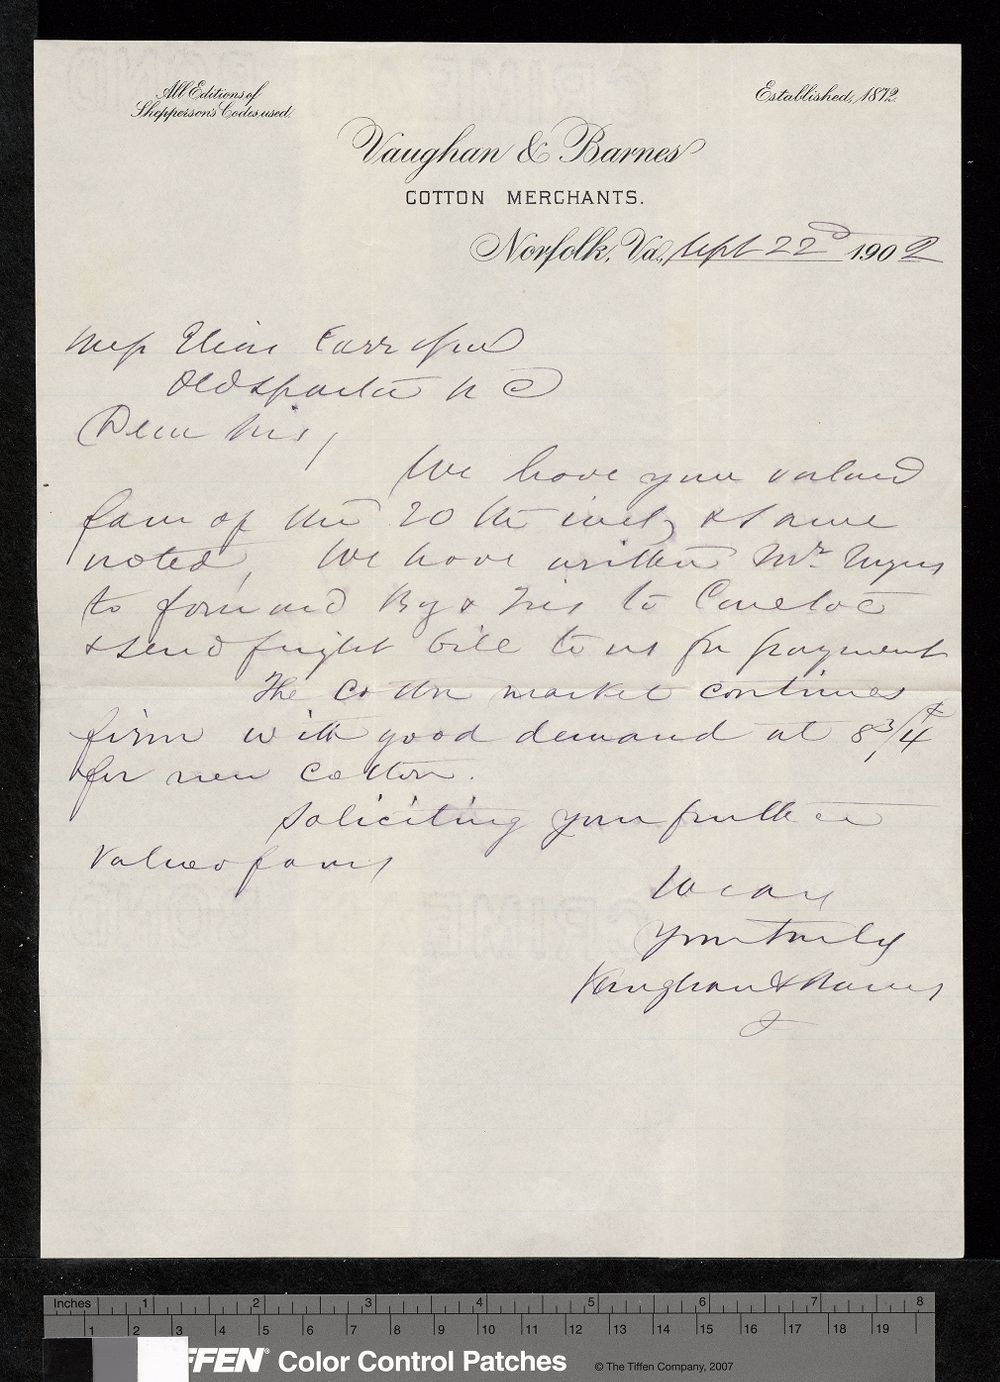 All Editions of
Shepperson's Codes used.
Established, 1872.
Vaughan & Barnes
COTTON MERCHANTS.
Norfolk, Va., Sept 22d 1902
Mess Elias Carr & Son
Old Sparta N C
Dear Sirs,
We have your valued
favr of the 20th inst, & same
noted, We have written Mr. Myers
to forward Bg & Ties to
& send freight bill to us for payment
The Cotton market continues
firm with good demand at 8 3/4
for new Cotton.
Soliciting your further
valued favrs
We are
Yours truly
Vaughan & Barnes
BOND
CRIME
Inches 1 2 3 4 5 6 7 8
1 2 3 4 5 6 7 8 9 10 11 12 13 14 15 16 17 18 19
FFEN® Color Control Patches © The Tiffen Company, 2007